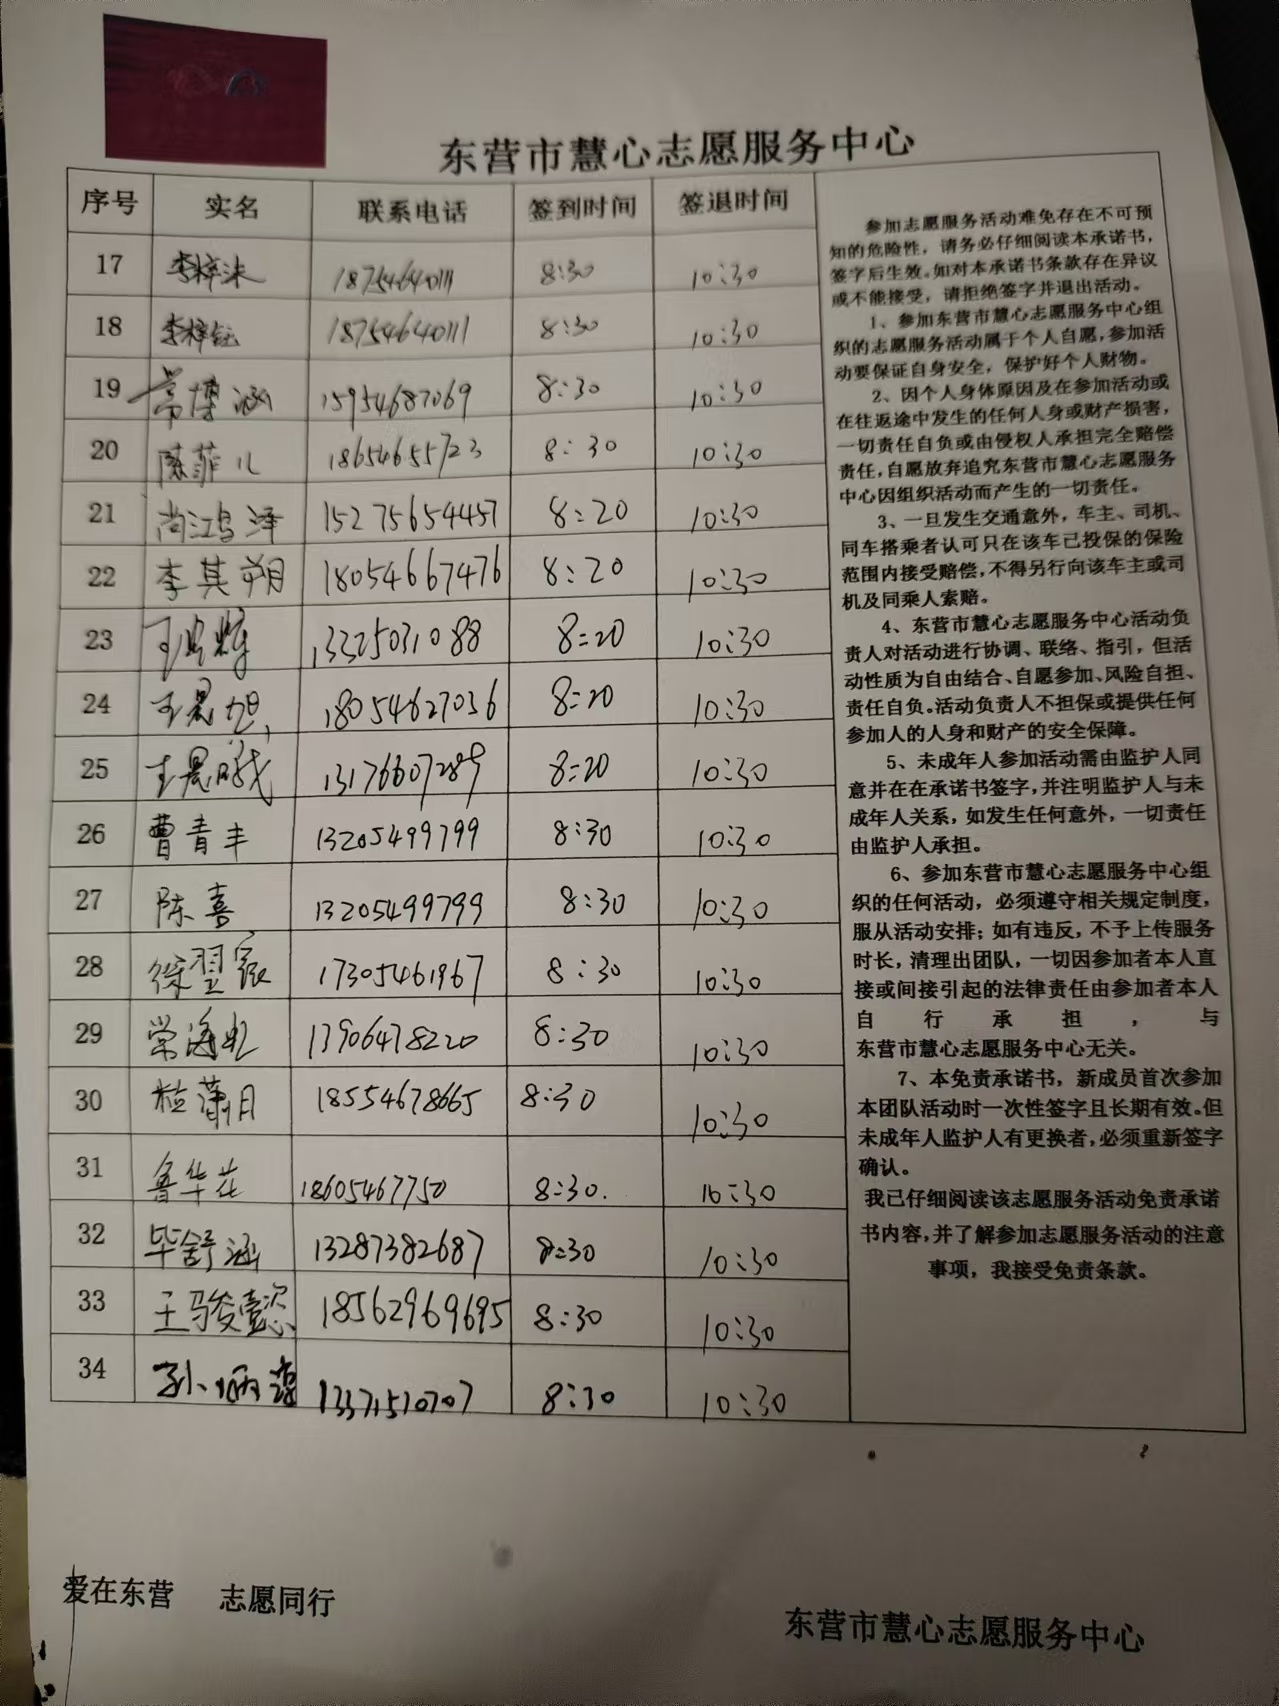 东营市慧心志愿服务中心
序号 实名 联系电话 签到时间 签退时间
17 李梓沫 18754640111 8:30 10:30
18 李梓钰 18754640111 8:30 10:30
19 常博涵 15954687069 8:30 10:30
20 陈菲儿 18654655723 8:30 10:30
21 尚江乌泽 15275654457 8:20 10:30
22 李其朔 18054667476 8:20 10:30
23 13325031088 8:20 10:30
24 王晨旭 18054627036 8:20 10:30
25 王晨曦 13176607289 8:20 10:30
26 曹青丰 13205499799 8:30 10:30
27 陈喜 13205499799 8:30 10:30
28 徐翌宸 17305461967 8:30 10:30
29 常海虹 13906478220 8:30 10:30
30 18554678665 8:30 10:30
31 鲁华花 18605467750 8:30. 10:30
32 毕舒涵 13287382687 8:30 10:30
33 王骏懿 18562969695 8:30 10:30
34 孙 13371510707 8:30 10:30
参加志愿服务活动难免存在不可预
知的危险性，请务必仔细阅读本承诺书，
签字后生效。如对本承诺书条款存在异议
或不能接受，请拒绝签字并退出活动。
1、参加东营市慧心志愿服务中心组
织的志愿服务活动属于个人自愿，参加活
动要保证自身安全，保护好个人财物。
2、因个人身体原因及在参加活动或
在往返途中发生的任何人身或财产损害，
一切责任自负或由侵权人承担完全赔偿
责任，自愿放弃追究东营市慧心志愿服务
中心因组织活动而产生的一切责任。
3、一旦发生交通意外，车主、司机、
同车搭乘者认可只在该车已投保的保险
范围内接受赔偿，不得另行向该车主或司
机及同乘人索赔。
4、东营市慧心志愿服务中心活动负
责人对活动进行协调、联络、指引，但活
动性质为自由结合、自愿参加、风险自担、
责任自负。活动负责人不担保或提供任何
参加人的人身和财产的安全保障。
5、未成年人参加活动需由监护人同
意并在在承诺书签字，并注明监护人与未
成年人关系，如发生任何意外，一切责任
由监护人承担。
6、参加东营市慧心志愿服务中心组
织的任何活动，必须遵守相关规定制度，
服从活动安排；如有违反，不予上传服务
时长，清理出团队，一切因参加者本人直
接或间接引起的法律责任由参加者本人
自行承担，与
东营市慧心志愿服务中心无关。
7、本免责承诺书，新成员首次参加
本团队活动时一次性签字且长期有效。但
未成年人监护人有更换者，必须重新签字
确认。
我已仔细阅读该志愿服务活动免责承诺
书内容，并了解参加志愿服务活动的注意
事项，我接受免责条款。
爱在东营 志愿同行
东营市慧心志愿服务中心